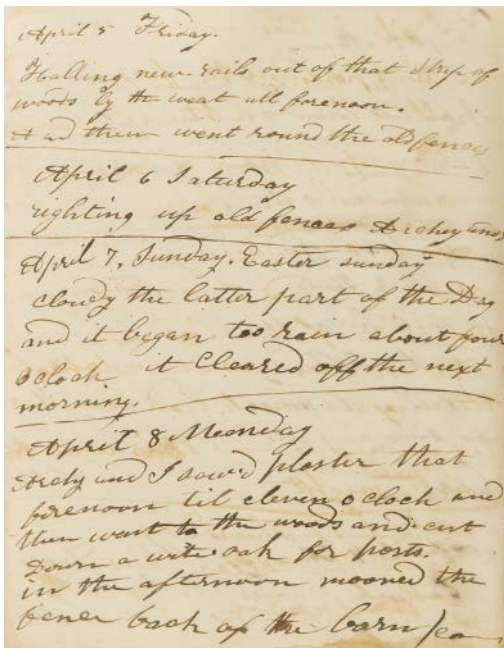 April 5 Friday.
Halling new rails out of that strip of
woods by the weat all forenoon.
And then went round the old fences
April 6 Saturday
righting up old fences Archey and
April 7. Sunday. Easter sunday
cloudy the latter part of the Day
and it began too rain about four
o clock it cleared off the next
morning.
April 8 Monday
Archy and I sow'd plaster that
forenoon til eleven o clock and
then want to the woods and cut
Down a wite oak for posts.
in the afternoon mooved the
fence back of the barn